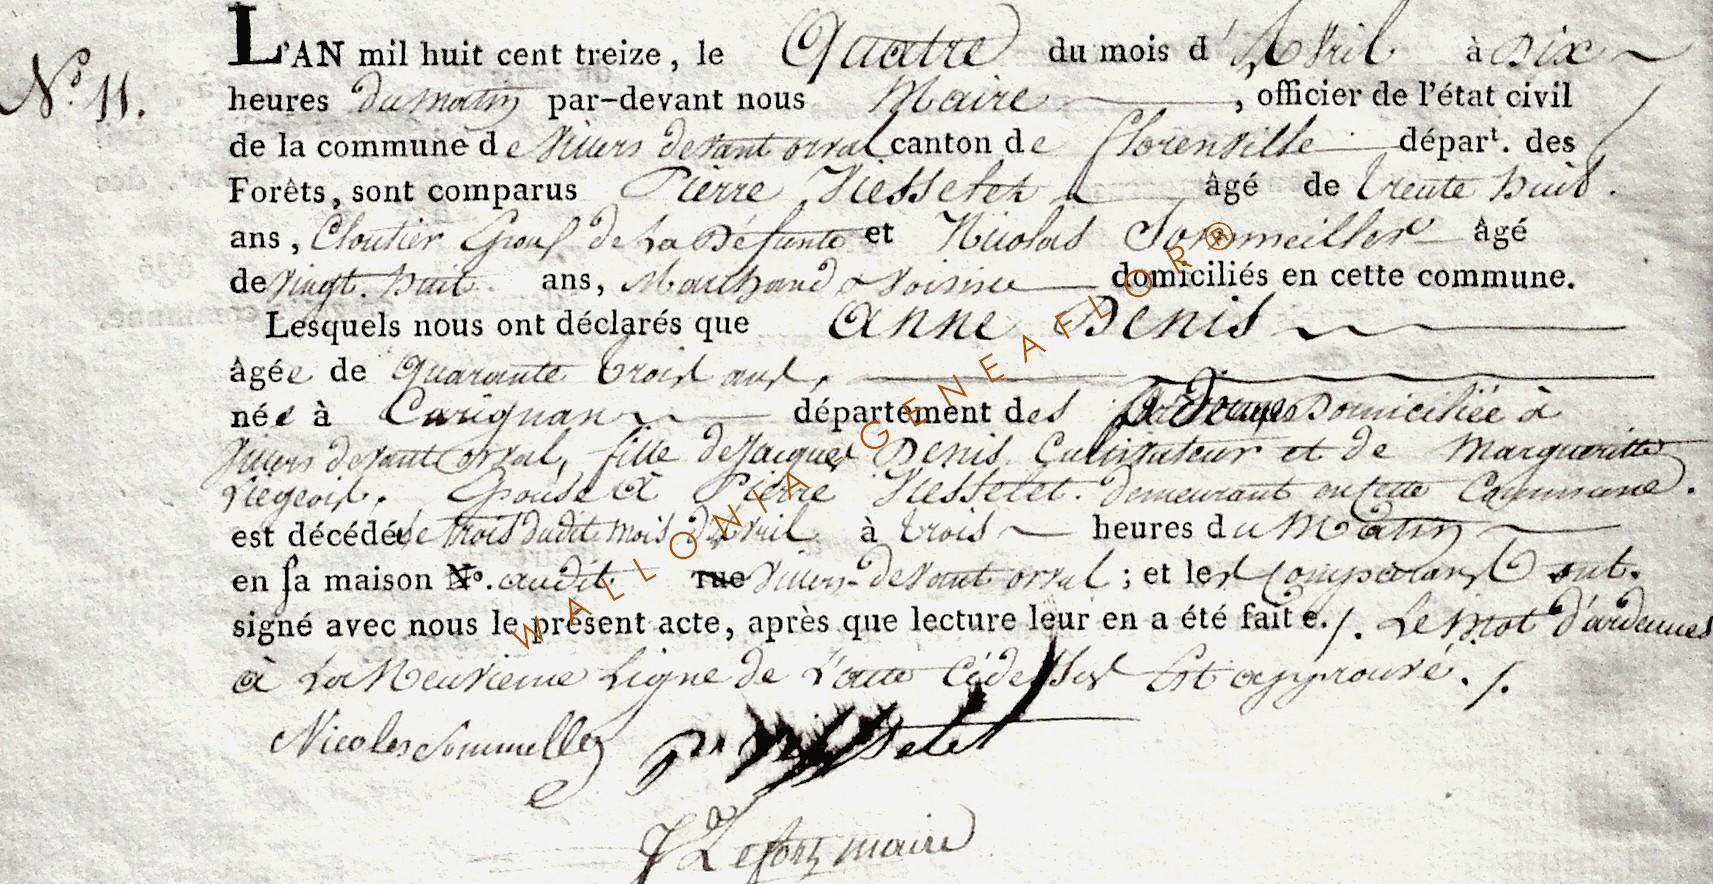 L'AN mil huit cent treize, le Quatre du mois d'Avril à Dix
No. 11.
heures du matin par-devant nous Maire, officier de l'état civil
de la commune de Villers devant orval canton de florenville départ. des
Forêts, sont comparus Pierre Hesselet âgé de trente huit.
ans, Cloutier Epoux de La Défunte et Nicolas Sommeiller âgé
de vingt. huit ans, Marchand & voisin domiciliés en cette commune.
Lesquels nous ont déclarés que Anne Denis
âgée de Quarante trois ans,
née à Carignan département des Domiciliée à
Villers devant orval, fille de Jacques Denis Cultivateur et de Margueritte
Liegeois. Epouse à Pierre Hesselet. demeurant en cette Commune.
est décédée le trois dudit mois d'avril à trois heures du Matin
en sa maison No. audit rue Villers-devant orval ; et les Comparants ont.
signé avec nous le présent acte, après que lecture leur en a été faite./. Le Mot d'ardennes
à La Neuvieme Ligne de L'acte Cidessus Est approuvé./.
Nicolas Sommeller
hesselet
J Lefort maire
WALLONIA-GENEAFLOR®